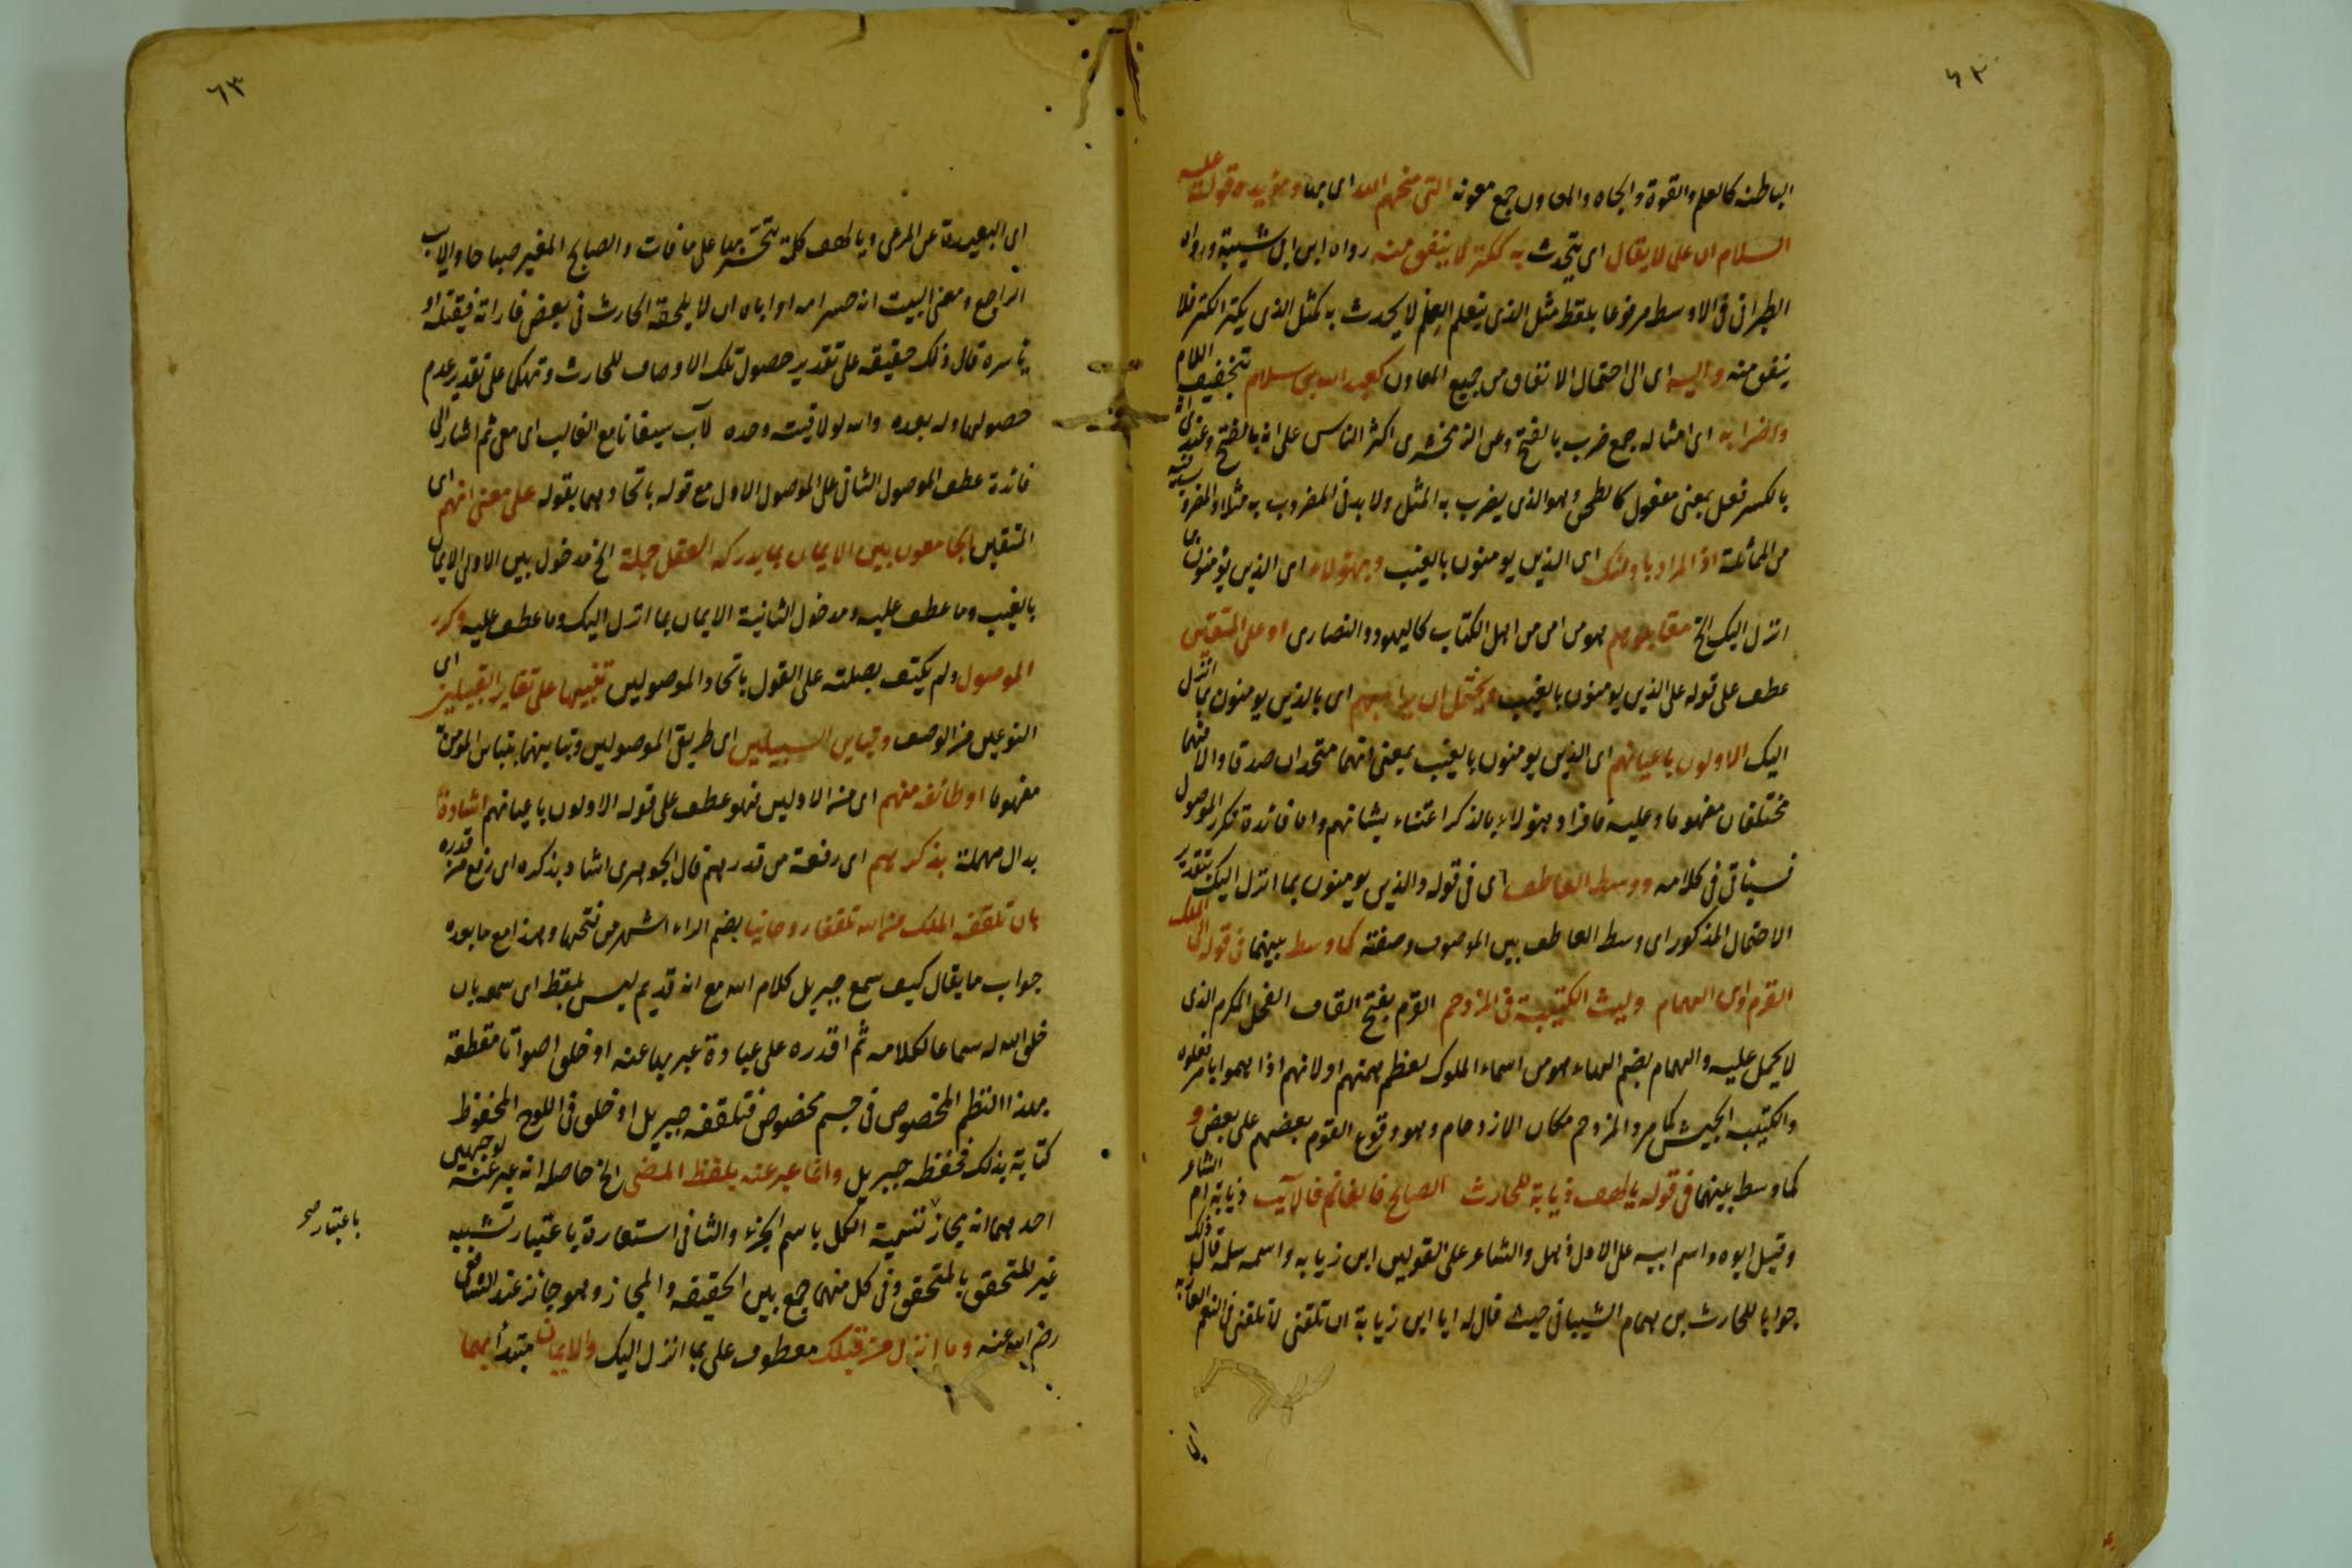 ٦٢
الباطنه كالعلم والقوة والجاه والمعاون جمع معونه التى منحهم الله اى بها ويؤيده قوله عليه
السلام ان علما لا يقال اى يتحدث به ككنز لا ينفق منه رواه ابن ابى شيبة ورواه
الطبرانى فى الاوسط مرفوعا بلفظ مثل الذى يتعلم العلم لا يحدث به كمثل الذى يكنز الكنز فلا
ينفق منه واليه اى الى احتمال الانفاق من جميع المعاون كعبد الله بن سلام بتخفيف اللام
واضرابه اى امثاله جمع ضرب بالفتح وعن الزمخشرى اكثر الناس على انه بالفتح وعندى انه
بالكسر فعل بمعنى مفعول كالطحن وهو الذى يضرب به المثل ولا بد فى المضروب به مثلا والمضروب فيه
من المماثلة اذ المراد باولئك اى الذين يومنون بالغيب وبهؤلاء اى الذين يؤمنون بما
انزل اليك الخ مقابلوهم هو من امن من اهل الكتاب كاليهود والنصارى او على المتقين
عطف على قوله على الذين يومنون بالغيب ويحتمل ان يراد بهم اى بالذين يومنون بما انزل
اليك الاولون باعيانهم اى الذين يومنون بالغيب بمعنى انهما متحدان صدقا والا فهما
مختلفان مفهوما وعليه فافراد هؤلاء بالذكر اعتناء بشانهم واما فائدة تكرر الموصول
فسياتى فى كلامه ووسط العاطف اى فى قوله والذين يومنون بما انزل اليك بتقدير
الاحتمال المذكور اى وسط العاطف بين الموصوف وصفته كما وسط بينهما فى قوله الى الملك
القرم وابن الهمام وليث الكتيبة فى المزدحم القرم بفتح القاف الفحل المكرم الذى
لا يحمل عليه والهمام بضم الهاء هو من اسماء الملوك لعظم همتهم او لانهم اذا هموا بامر فعلوه
والكتيبه الجيش كما مر والمزدحم مكان الازدحام وهو وقوع القوم بعضهم على بعض و
كما وسط بينهما فى قوله يا لهف زيابة للحارث الصابح فالغانم فالآيب زيابة ام الشاعر
وقيل ابوه واسم ابيه على الاول ذهل والشاعر على القولين ابن زيابه واسمه سلمة قال ذلك
جوابا للحارث بن همام الشيبانى حيث قال له ايا ابن زيابة ان تلقنى لا تلقنى فى النعم العازبه
اى
٦٣
اى البعيدة عن المرعى ويا لهف كلمة يتحسر بها على ما فات والصابح المغير صباحا والايب
الراجع ومعنى البيت انه حسر امه او اباه ان لا يلحقه الحارث فى بعض غاراته فيقتله او
ياسره قال ذلك حقيقه على تقدير حصول تلك الاوصاف للحارث وتهكما على تقدير عدم
حصولها وله بعده والله لو لاقيته وحده لآب سيفانا مع الغالب اى معى ثم اشار الى
فائدة عطف الموصول الثانى على الموصول الاول مع قوله باتحادهما بقوله على معنى انهم اى
المتقين الجامعون بين الايمان بما يدركه العقل جملة الخ مدخول بين الاولى الايمان
بالغيب وما عطف عليه ومدخول الثانية الايمان بما انزل اليك وما عطف عليه وكرر
الموصول ولم يكتف بصلته على القول باتحاد الموصولين تنبيها على تغاير القبيلين اى
النوعين من الوصف وتباين السبيلين اى طريق الموصولين وتباينهما بتباين المومن به
مفهوما او طائفه منهم اى من الاولين فهو عطف على قوله الاولون باعيانهم اشادة
بدال مهملة بذكرهم اى رفعة من قدرهم قال الجوهرى اشاد بذكره اى رفع من قدره
بان تلقفه الملك من الله تلقفا روحانيا بضم الراء اشهر من فتحها وهذا مع ما بعده
جواب ما يقال كيف سمع جبريل كلام الله مع انه قديم ليس بلفظ اى سمعه بان
خلق الله له سماعا لكلامه ثم اقدره على عبارة عبر بها عنه او خلق اصواتا مقطعة
بهذا النظم المخصوص فى جسم مخصوص فتلقفه جبريل او خلق فى اللوح المحفوظ
كتابة بذلك فحفظه جبريل وانما عبر عنه بلفظ المضى الخ حاصله انه عبر عنه لوجهين
احدهما انه مجاز تسمية الكل باسم الجزء والثانى استعارة باعتبار تشبيه
باعتبار صح
غير المتحقق بالمتحقق وفى كل منهما جمع بين الحقيقه والمجاز وهو جائز عند الشافعى
رضى الله عنه وما انزل من قبلك معطوف على بما انزل اليك والايمان مبتدأ بهما